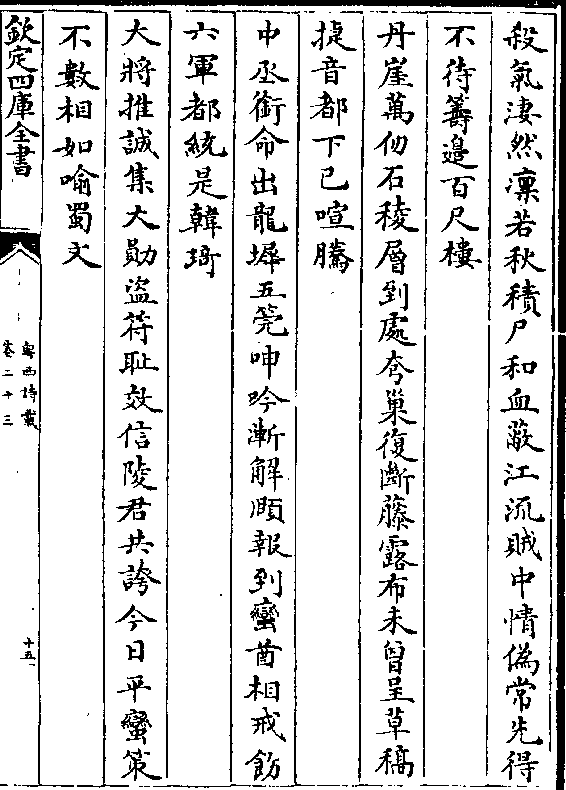 殺氣淒然凜若秋積尸和血蔽江流賊中情偽常先得
不待籌邊百尺樓
丹崖萬仞石稜層到處夸巢復斷藤露布未曾呈草稿
捷音都下已喧騰
中丞銜命出龍墀五筦呻吟漸解頤報到蠻酋相戒飭
六軍都統是韓琦
大將推誠集大勛盜符耻效信陵君共誇今日平蠻策
不數相如喻蜀文
欽定四庫全書
粵西詩載
卷二十三
十五